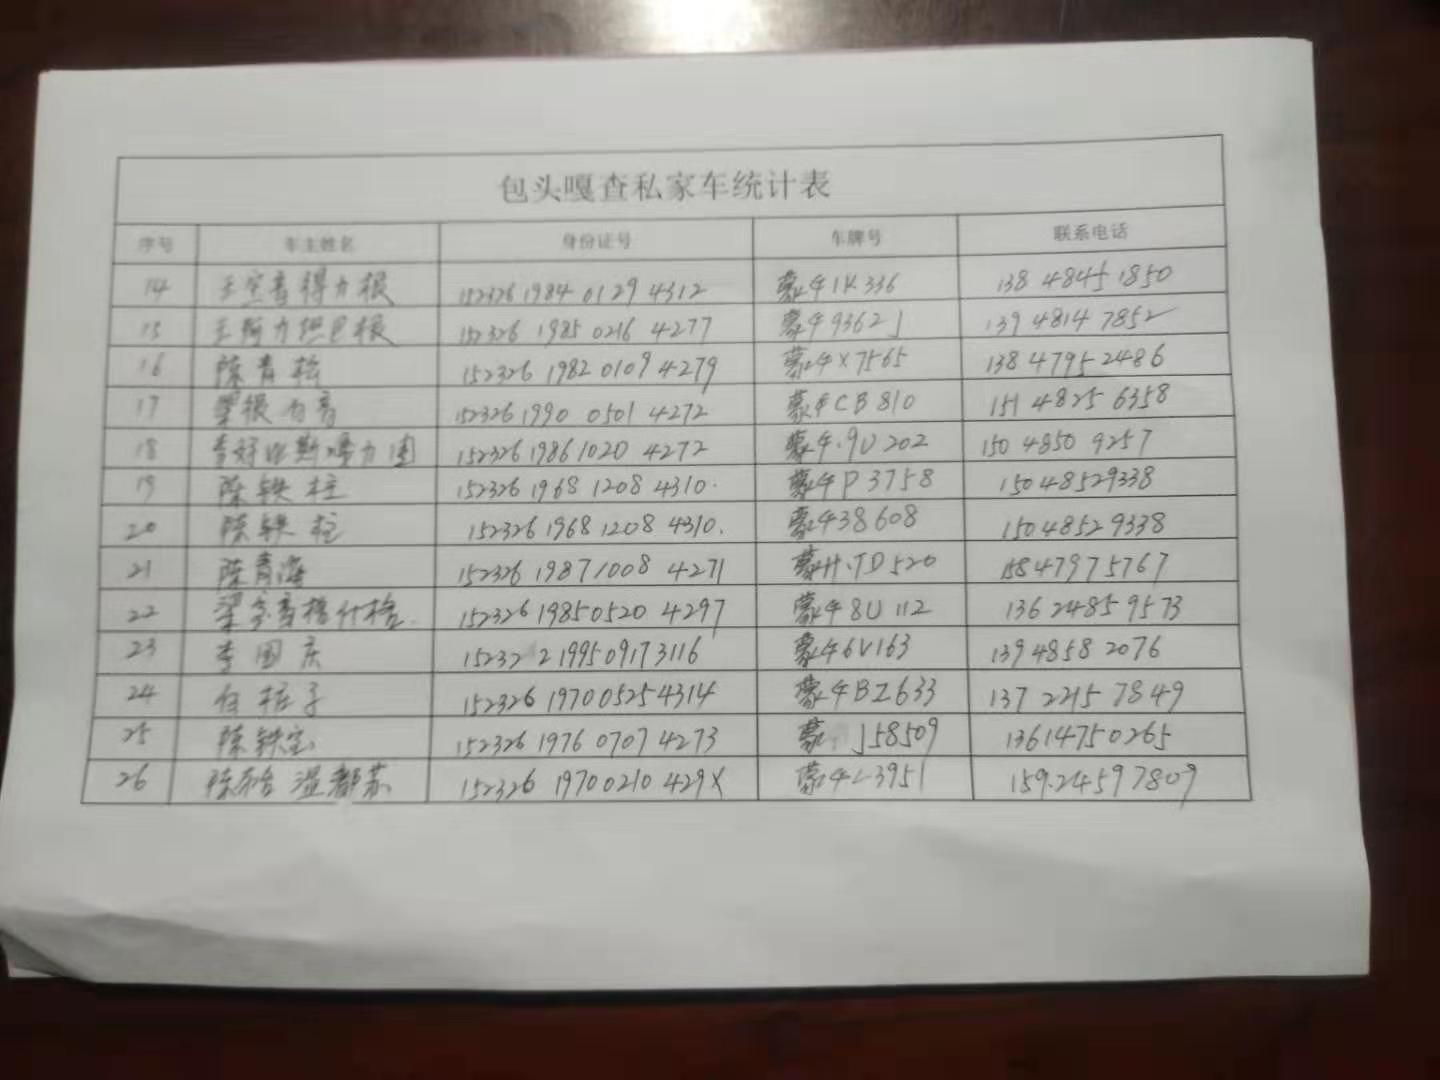 包头嘎查私家车统计表
序号 车主姓名 身份证号 车牌号 联系电话
14 152326 1984 0129 4312 蒙G1K336 138 4845 1850
15 152326 1985 0216 4277 蒙G9362J 139 4814 7852
16 陈青松 152326 1982 0109 4279 蒙GX7565 138 4795 2486
17 152326 1990 0501 4272 蒙GCB810 151 4825 6358
18 152326 1986 1020 4272 蒙G·9U202 150 4850 9257
19 陈铁柱 152326 1968 1208 4310. 蒙GP3758 15048529338
20 陈铁柱 152326 1968 1208 4310. 蒙G38608 15048529338
21 陈青海 152326 1987 1008 4271 蒙H·TD520 15847975767
22 152326 19850520 4297 蒙G8U112 136 2485 9573
23 李国庆 152322 199509173116 蒙G6V163 139 4858 2076
24 白柱子 152326 197005254314 蒙GBZ633 137 2215 7849
25 陈铁宝 152326 1976 0707 4273 蒙 J58509 13614750265
26 温都苏 152326 19700210 429X 蒙GL3951 159.24597809